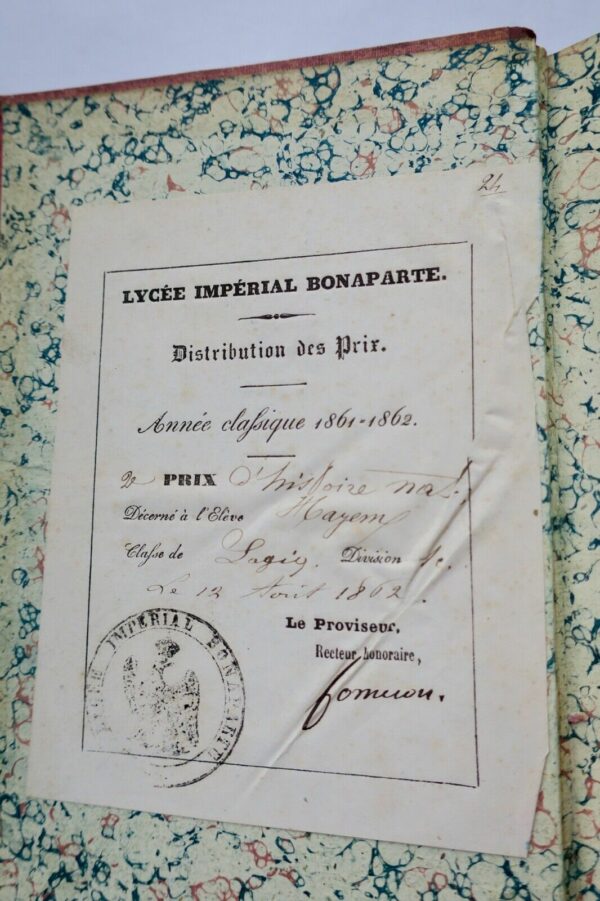 24
LYCÉE IMPÉRIAL BONAPARTE.
Distribution des Prix.
Année classique 1861-1862.
2e PRIX d'histoire nat.
Décerné à l'Elève Hayem
Classe de Logiq. Division
Le 12 Août 1862.
Le Proviseur,
Recteur honoraire,
LYCÉE IMPÉRIAL BONAPARTE